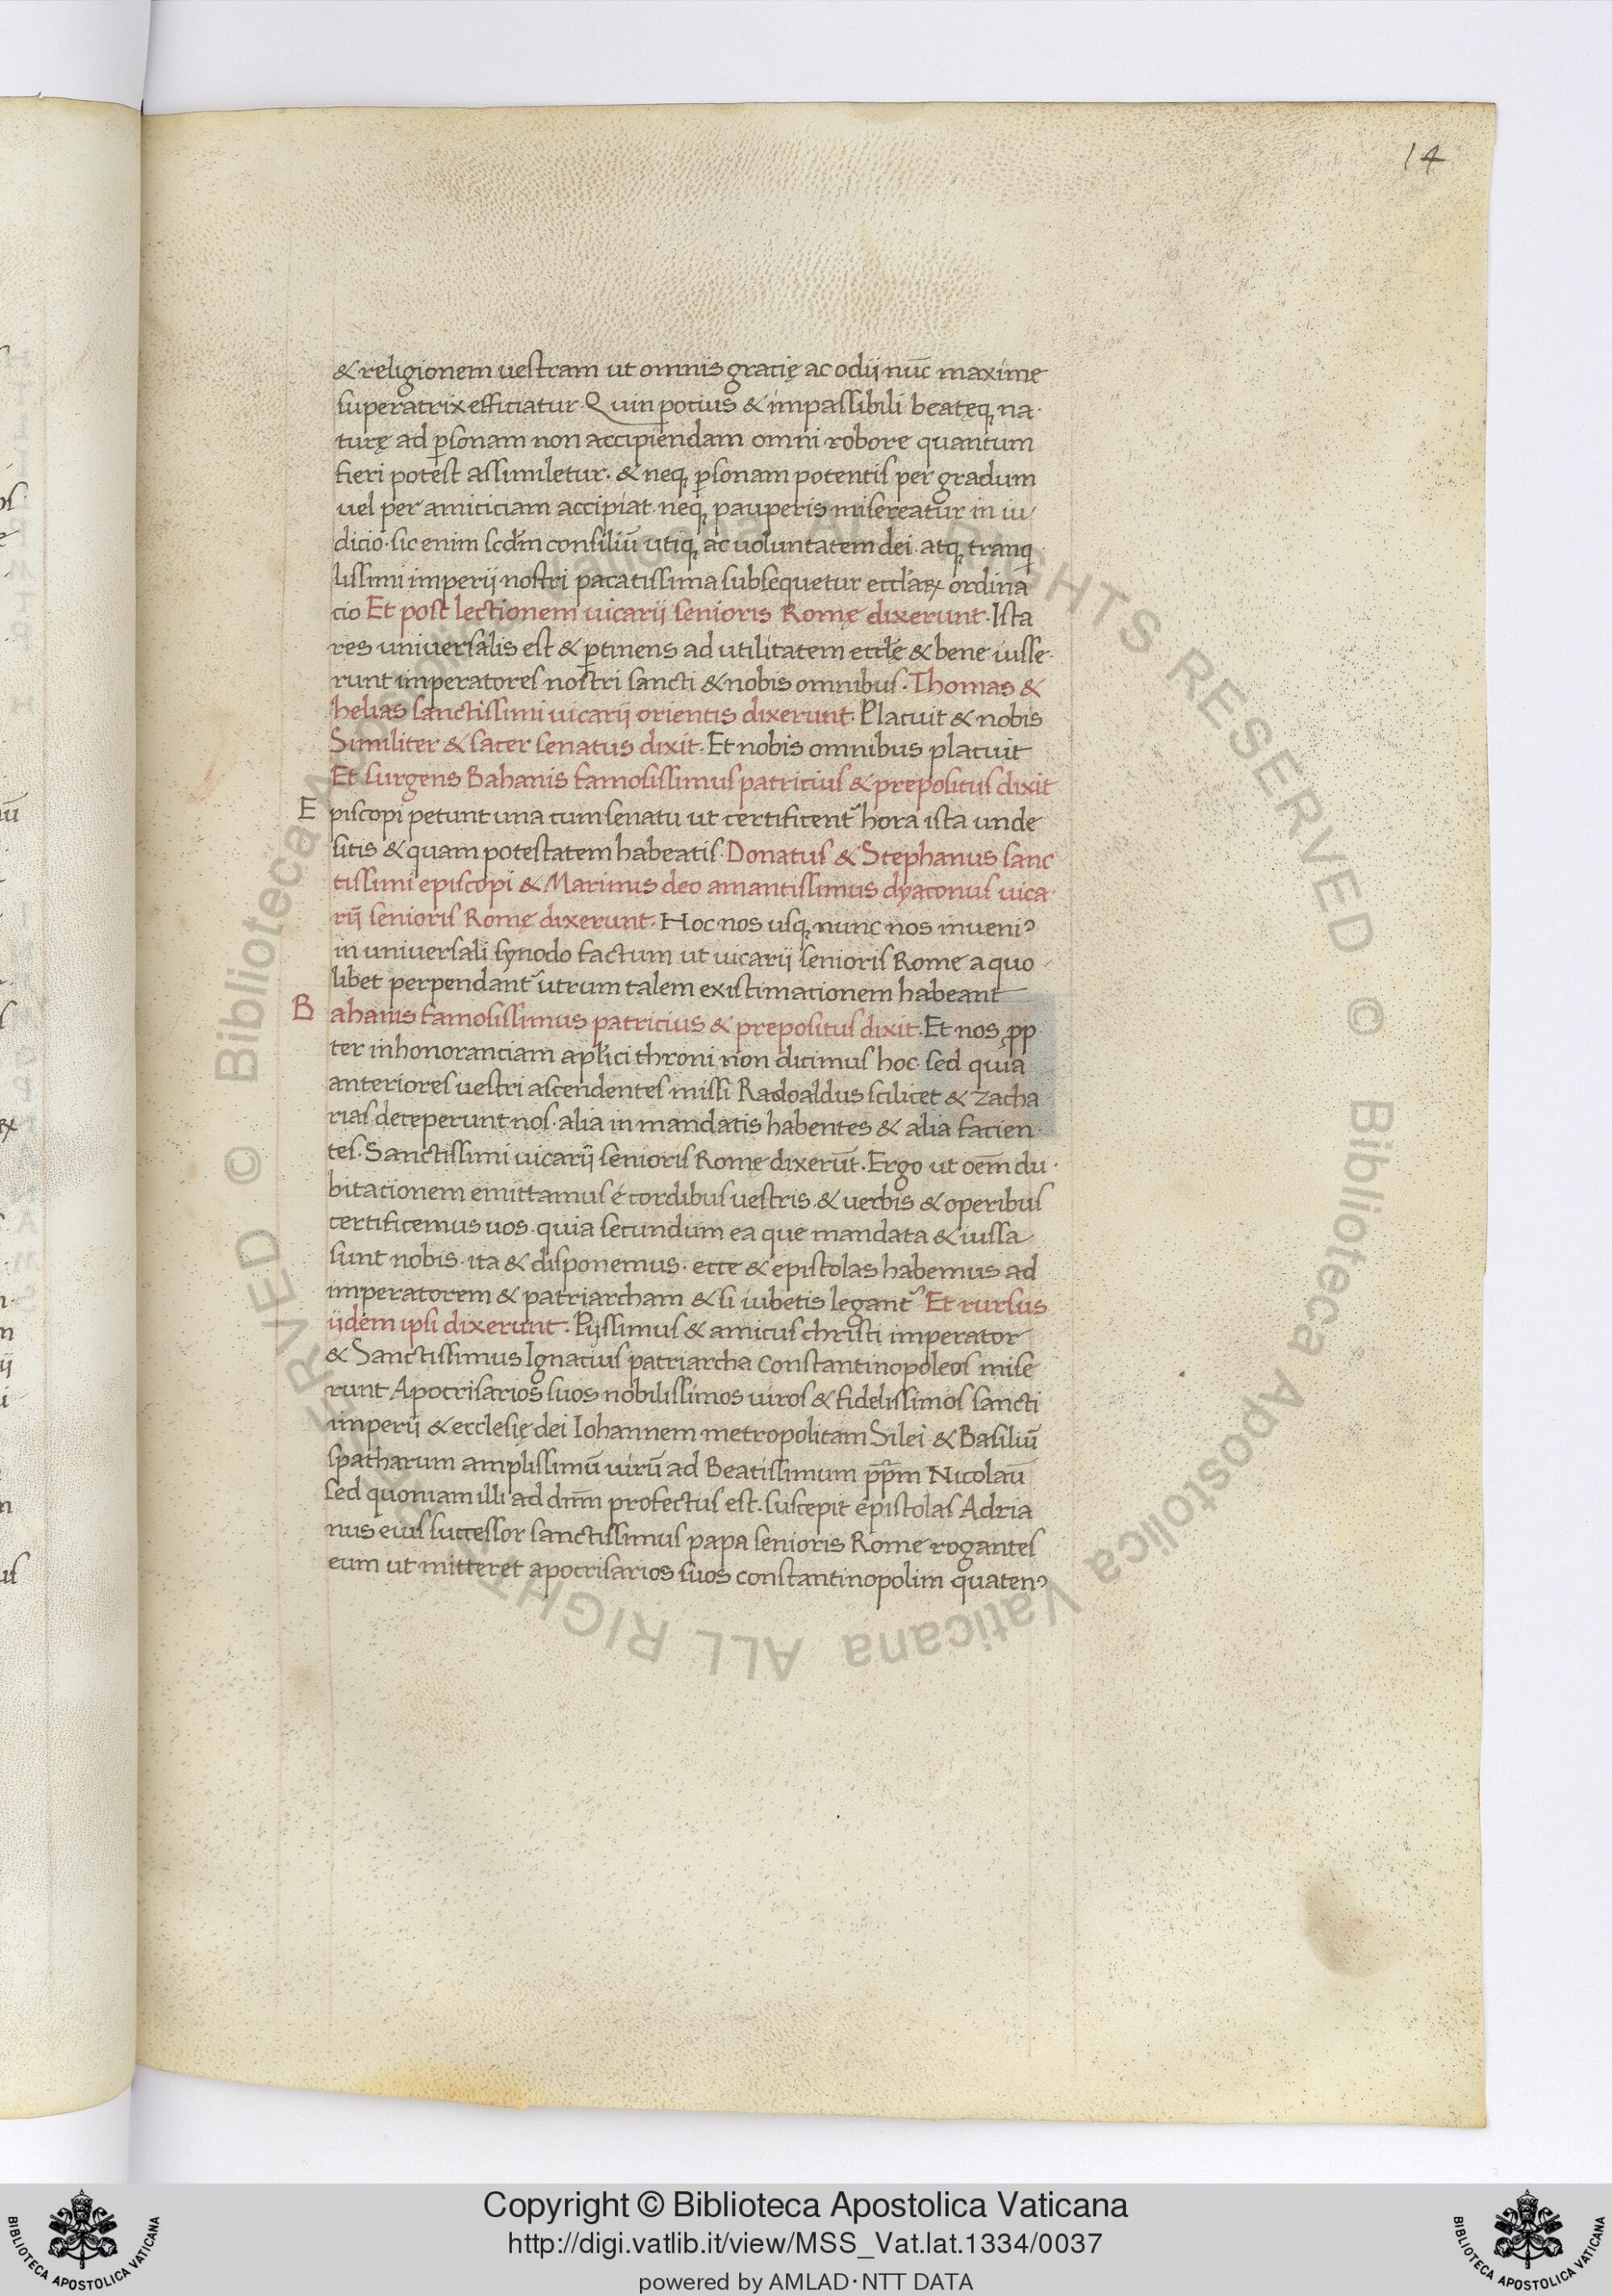 14
& religionem uestram ut omnis gratię ac odij nūc maxime
superatrix efficiatur. Quin potius & impassibili beateq, na-
turę ad psonam non accipiendam omni robore quantum
fieri potest assimiletur. & neq, psonam potentis per gradum
uel per amiciciam accipiat. neq, pauperis misereatur in iu/
dicio. sic enim scdm consiliū utiq, ac uoluntatem dei. atq, tranq
lissimi imperij nostri pacatissima subsequetur ecclaꝝ ordina
cio Et post lectionem uicarij senioris Romę dixerunt. Ista
res uniuersalis est & ptinens ad utilitatem eccle & bene iusse-
runt imperatores nostri sancti & nobis omnibus. Thomas &
helias sanctissimi uicarij orientis dixerunt. Placuit & nobis
Similiter & sacer senatus dixit. Et nobis omnibus placuit
Et surgens Bahanis famosissimus patricius & prepositus dixit
Episcopi petunt una cum senatu ut certificent' hora ista unde
sitis & quam potestatem habeatis. Donatus & Stephanus sanc
tissimi episcopi & Marinus deo amantissimus dyaconus uica-
rij senioris Romę dixerunt. Hoc nos usq, nunc nos inueniꝰ
in uniuersali synodo factum ut uicarij senioris Rome a quo-
libet perpendant' utrum talem existimationem habeant
Bahanis famosissimus patricius & prepositus dixit. Et nos pp
ter inhonoranciam aplici throni non dicimus hoc. sed quia
anteriores uestri ascendentes missi Radoaldus scilicet & Zacha
rias deceperunt nos. alia in mandatis habentes & alia facien-
tes. Sanctissimi uicarij senioris Rome dixerūt. Ergo ut oēm du-
bitationem emittamus e cordibus uestris. & uerbis & operibus
certificemus uos. quia secundum ea que mandata & iussa
sunt nobis. ita & disponemus. ecce & epistolas habemus ad
imperatorem & patriarcham & si iubetis legant' Et rursus
ijdem ipsi dixerunt. Pijssimus & amicus christi imperator
& Sanctissimus Ignatius patriarcha Constantinopoleos mise
runt Apocrisarios suos nobilissimos uiros & fidelissimos sancti
imperij & ecclesię dei Iohannem metropolitam Silei & Basiliū
spatharum amplissimū uirū ad Beatissimum pp̄m Nicolaū
sed quoniam illi ad dnm̄ profectus est. suscepit epistolas Adria
nus eius successor sanctissimus papa senioris Rome rogantes
eum ut mitteret apocrisarios suos constantinopolim quatenꝰ
© Biblioteca Apostolica Vaticana ALL RIGHTS RESERVED © Biblioteca Apostolica Vaticana ALL RIGHTS RESERVED
Copyright © Biblioteca Apostolica Vaticana
http://digi.vatlib.it/view/MSS_Vat.lat.1334/0037
powered by AMLAD·NTT DATA
BIBLIOTECA APOSTOLICA VATICANA
BIBLIOTECA APOSTOLICA VATICANA